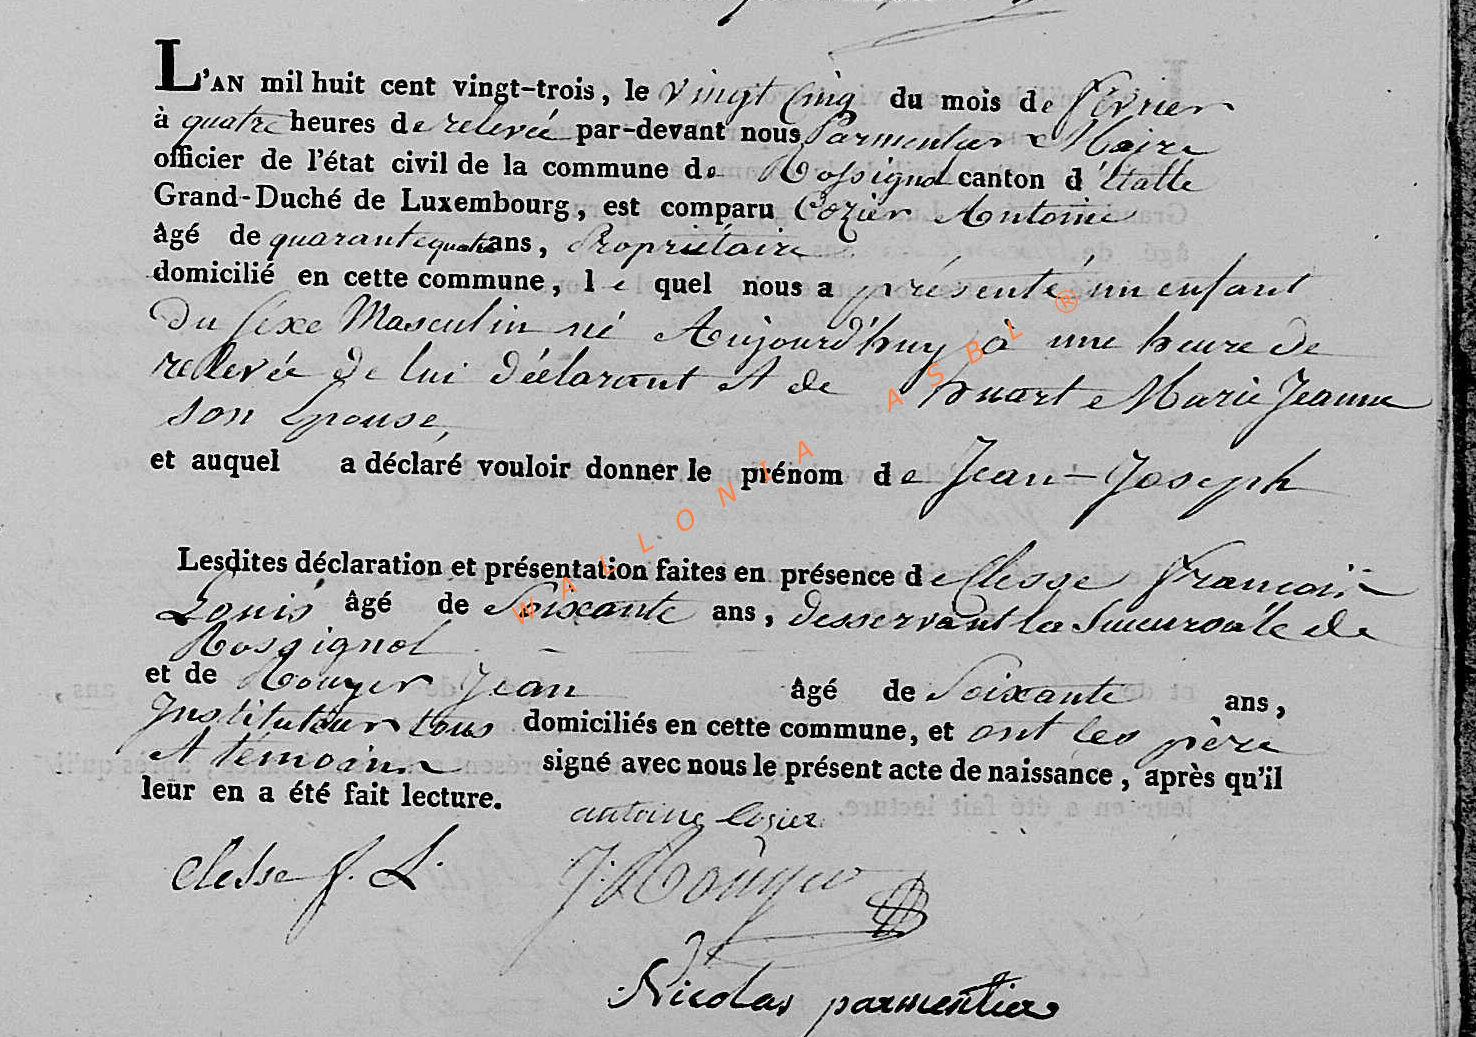 L'AN mil huit cent vingt-trois, le vingt Cinq du mois de février
à quatre heures de relevée par-devant nous Parmentier Maire
officier de l'état civil de la commune de Rossignol canton d'étalle
Grand-Duché de Luxembourg, est comparu Lozier Antoine
âgé de quarante quatre ans, Propriétaire
domicilié en cette commune, le quel nous a présenté un enfant
du sexe Masculin né Aujourd'huy à une heure de
rellevée de lui déclarant et de huart Marie Jeanne
son Epouse,
et auquel a déclaré vouloir donner le prénom de Jean-Joseph
Lesdites déclaration et présentation faites en présence de Clesse François
Louis âgé de Soixante ans, desservant la Succursale de
Rossignol
et de Rouyer Jean âgé de Soixante ans,
Instituteur tous domiciliés en cette commune, et ont les père
et témoins signé avec nous le présent acte de naissance, après qu'il
leur en a été fait lecture.
antoine lozier
Clesse f. L. J. Rouyer
Nicolas parmentier
WALLONIA ASBL ®